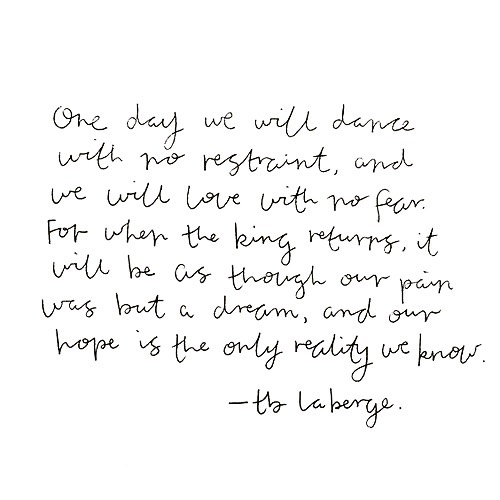 One day we will dance
with no restraint, and
we will love with no fear.
For when the king returns, it
will be as though our pain
was but a dream, and our
hope is the only reality we know.
—tb laberge.